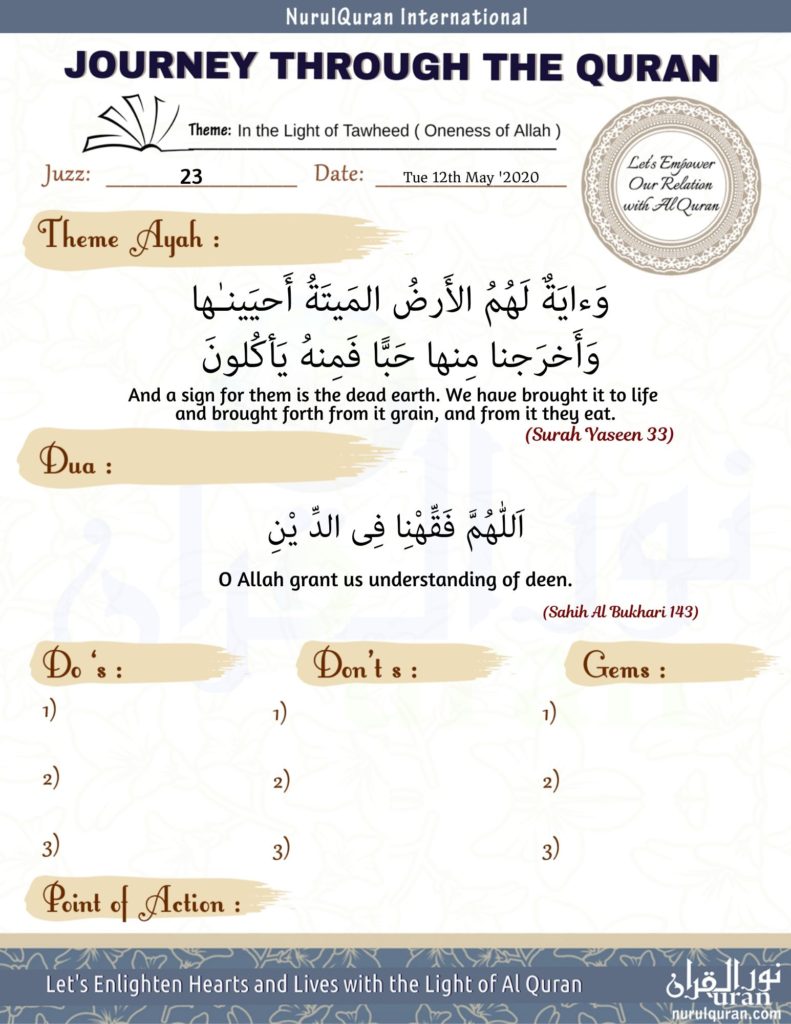 NurulQuran International
JOURNEY THROUGH THE QURAN
Theme: In the Light of Tawheed ( Oneness of Allah )
Juzz: 23 Date: Tue 12th May '2020
Let's Empower
Our Relation
with Al Quran
Theme Ayah :
وَءايَةٌ لَهُمُ الأَرضُ المَيتَةُ أَحيَينـٰها
وَأَخرَجنا مِنها حَبًّا فَمِنهُ يَأكُلونَ
And a sign for them is the dead earth. We have brought it to life
and brought forth from it grain, and from it they eat.
(Surah Yaseen 33)
Dua :
اَللّٰهُمَّ فَقِّهْنِا فِى الدِّ يْنِ
O Allah grant us understanding of deen.
(Sahih Al Bukhari 143)
Do 's : Don't s : Gems :
1) 1) 1)
2) 2) 2)
3) 3) 3)
Point of Action :
Let's Enlighten Hearts and Lives with the Light of Al Quran
نور القرآن
uran
nurulquran.com